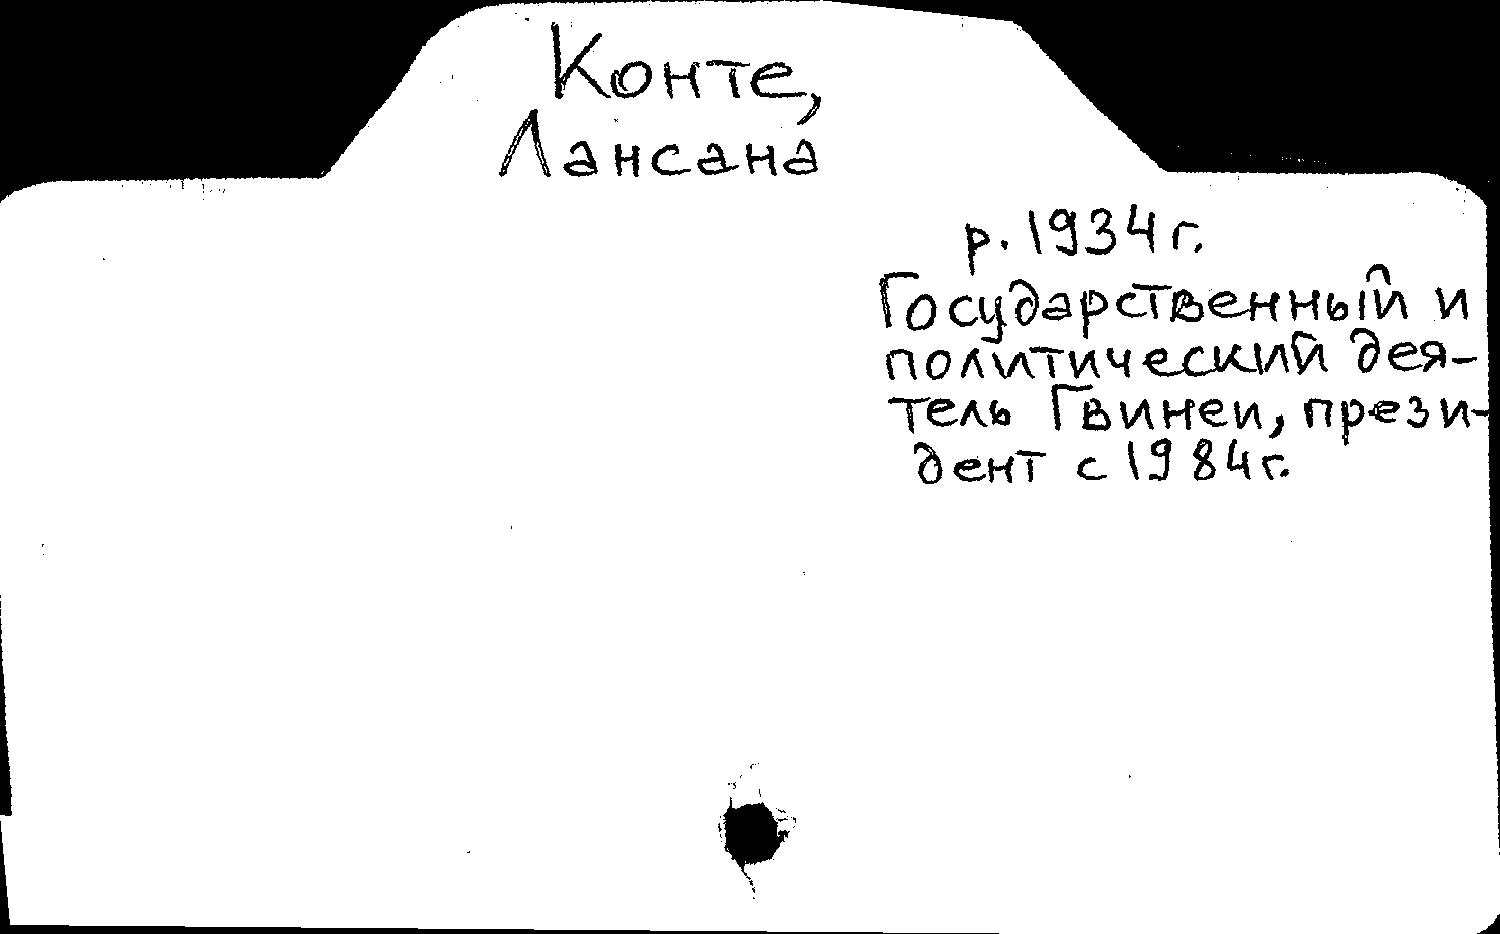 Конте,
Лансана
р. 1934 г.
Государственный и
политический дея-
тель Гвинеи, прези-
дент с 1984 г.